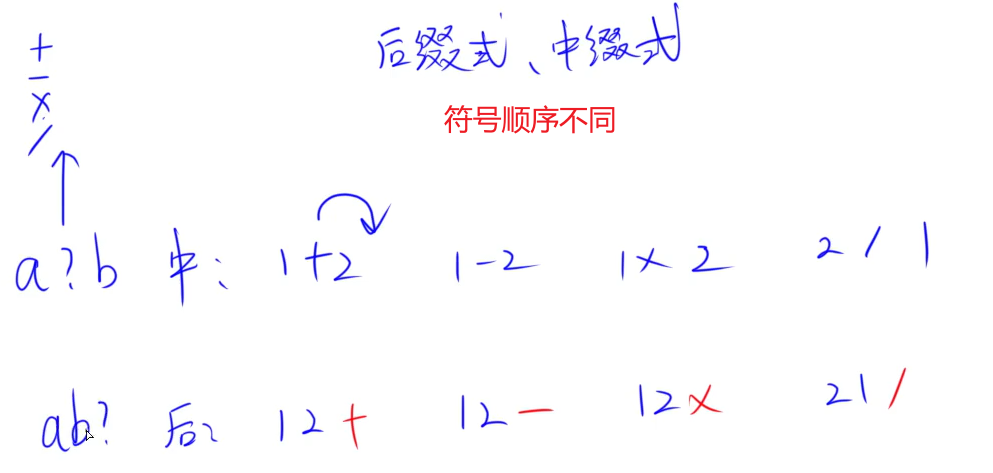 后缀式、中缀式
符号顺序不同
+
-
×
/
a?b 中: 1+2 1-2 1×2 2/1
ab? 后: 12+ 12- 12× 21/